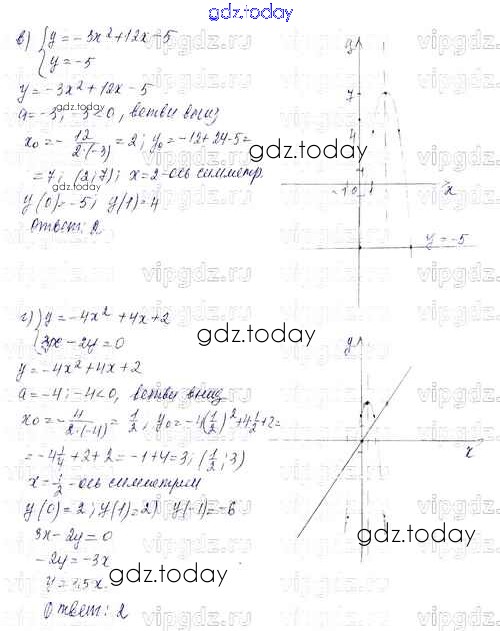 gdz.today
в) { y = -3x² + 12x - 5
y = -5
y = -3x² + 12x - 5
a = -3; -3 < 0, ветви вниз
x₀ = - 12 / 2·(-3) = 2; y₀ = -12 + 24 - 5 =
= 7; (2; 7); x = 2 - ось симметр.
y(0) = -5; y(1) = 4
Ответ: 2
y
7
4
-1 0
x
y = -5
gdz.today
gdz.today
г) { y = -4x² + 4x + 2
3x - 2y = 0
y = -4x² + 4x + 2
a = -4; -4 < 0, ветви вниз
x₀ = - 4 / 2·(-4) = 1/2; y₀ = -4(1/2)² + 4 1/2 + 2 =
= -4 1/4 + 2 + 2 = -1 + 4 = 3; (1/2; 3)
x = 1/2 - ось симметрии
y(0) = 2; y(1) = 2; y(-1) = -6
3x - 2y = 0
-2y = -3x
y = 1,5x
Ответ: 2
y
x
gdz.today
gdz.today
gdz.today
gdz.today
vipgdz.ru